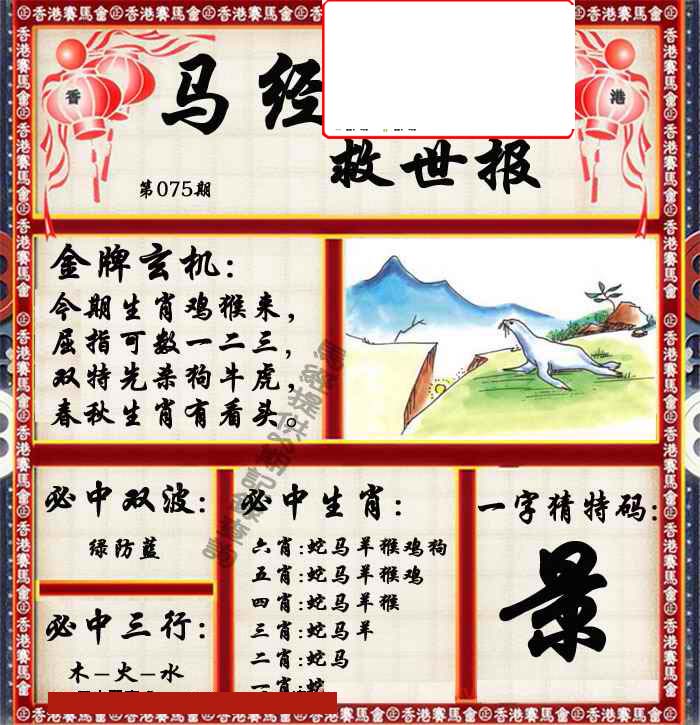 马经
救世报
香
港
第075期
金牌玄机:
今期生肖鸡猴来，
屈指可数一二三，
双特先杀狗牛虎，
春秋生肖有看头。
必中双波:
绿防蓝
必中三行:
木-火-水
必中生肖:
六肖:蛇马羊猴鸡狗
五肖:蛇马羊猴鸡
四肖:蛇马羊猴
三肖:蛇马羊
二肖:蛇马
一肖:蛇
一字猜特码:
景
香港賽馬會